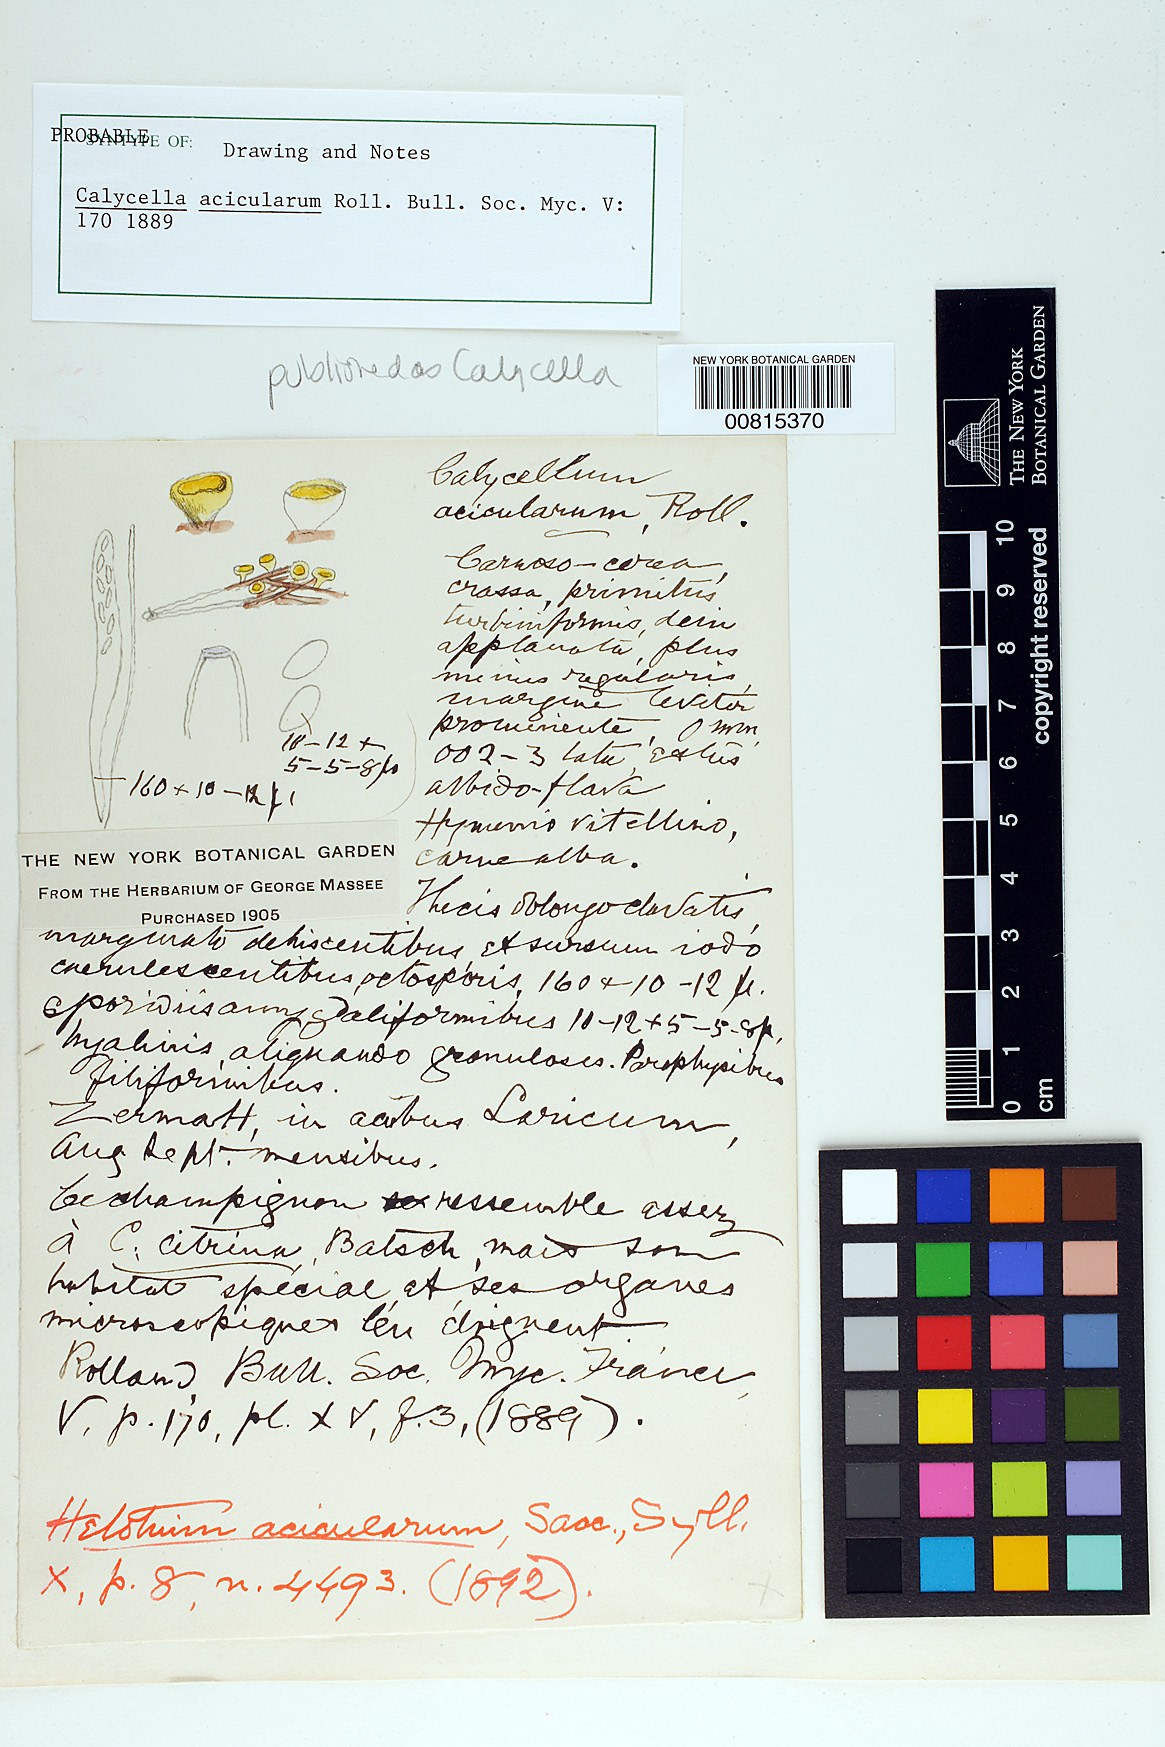 PROBABLE
SYNTYPE OF:
Drawing and Notes
Calycella acicularum Roll. Bull. Soc. Myc. V:
170 1889
published as Calycella
NEW YORK BOTANICAL GARDEN
00815370
Calycellum
acicularum, Roll.
Carnoso-cerea,
crassa, primitus
turbiniformis, dein
applanata, plus
minus regularis,
margine leviter
prominente, 0 mm,
002-3 lata, extus
albido-flava
Hymenio vitellino,
carne alba.
10-12 x
5-5-8 µ
160 x 10-12 µ
THE NEW YORK BOTANICAL GARDEN
FROM THE HERBARIUM OF GEORGE MASSEE
PURCHASED 1905
Thecis oblongo clavatis,
marginato dehiscentibus et sursum iodo
caerulescentibus, octosporis, 160 x 10-12 µ.
Sporidiis amygdaliformibus 10-12 x 5-5-8 µ,
hyalinis, aliquando granulosis. Paraphysibus
filiformibus.
Zermatt, in acibus Laricum,
Aug Sept. mensibus.
Ce champignon ressemble assez
à C. citrina, Batsch, mais son
habitat spécial et ses organes
microscopiques l'en éloignent.
Rolland, Bull. Soc. Myc. France,
V, p. 170, pl. XV, f. 3, (1889).
Helotium acicularum, Sacc., Syll.
X, p. 8, n. 4493. (1892).
THE NEW YORK
BOTANICAL GARDEN
copyright reserved
10
9
8
7
6
5
4
3
2
1
0
cm